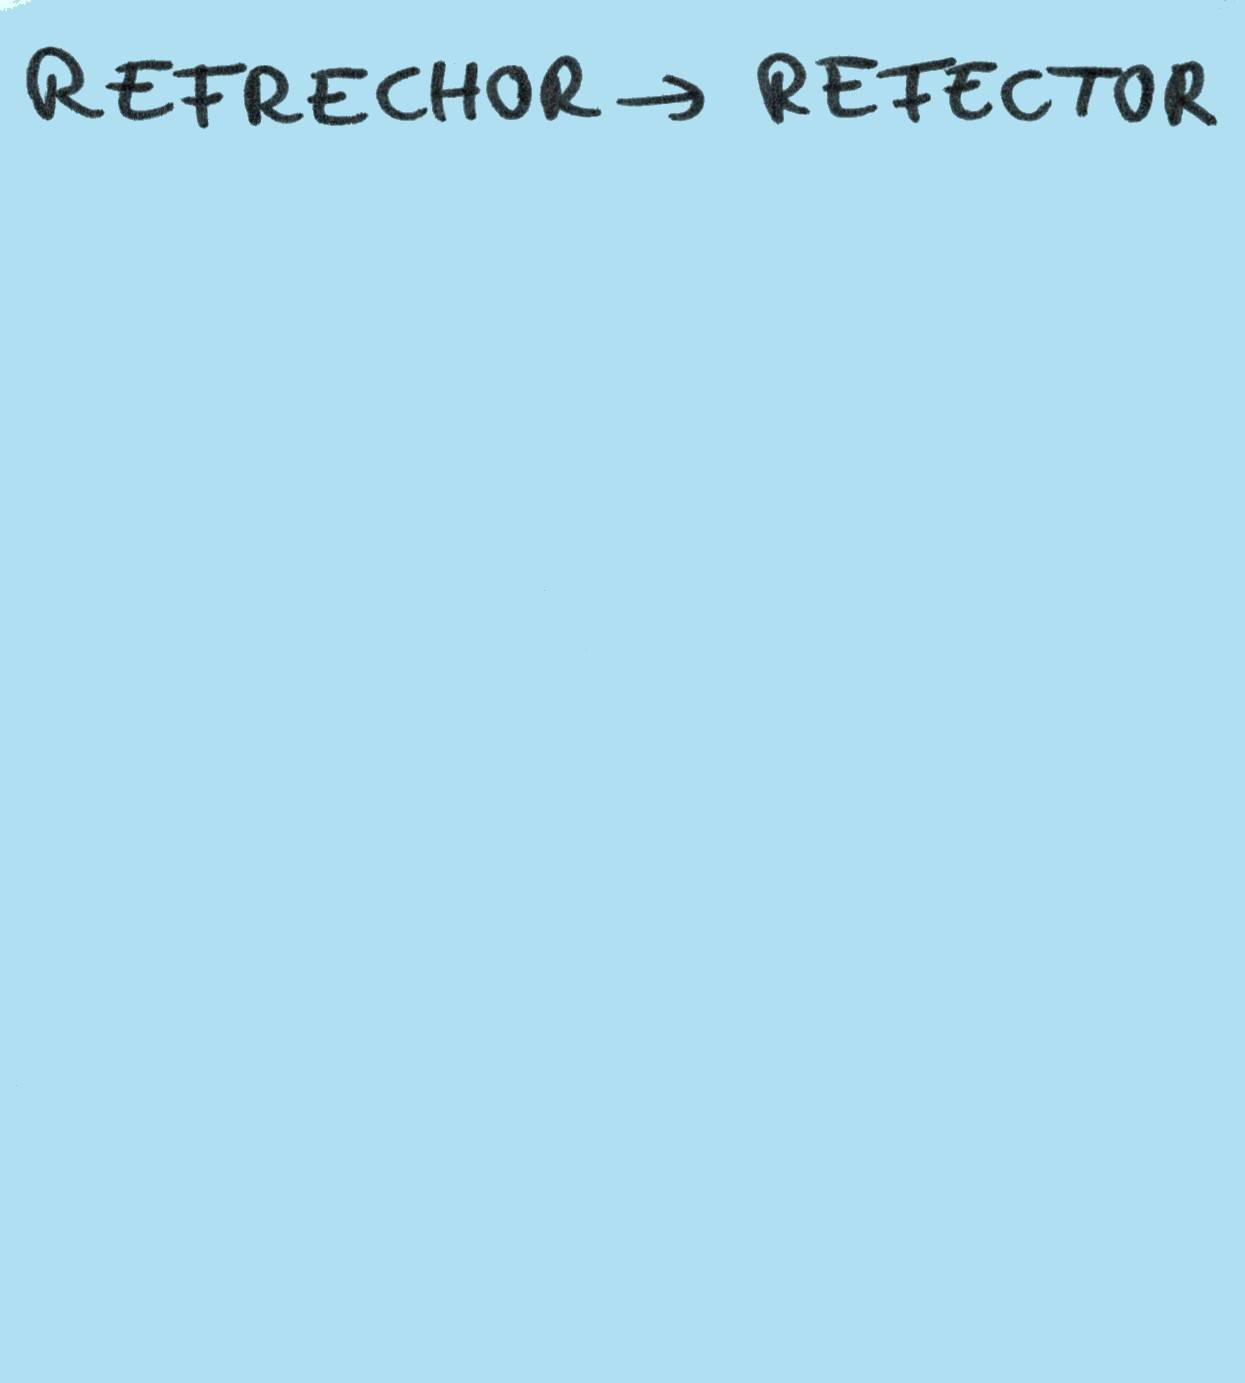 REFRECHOR → REFECTOR